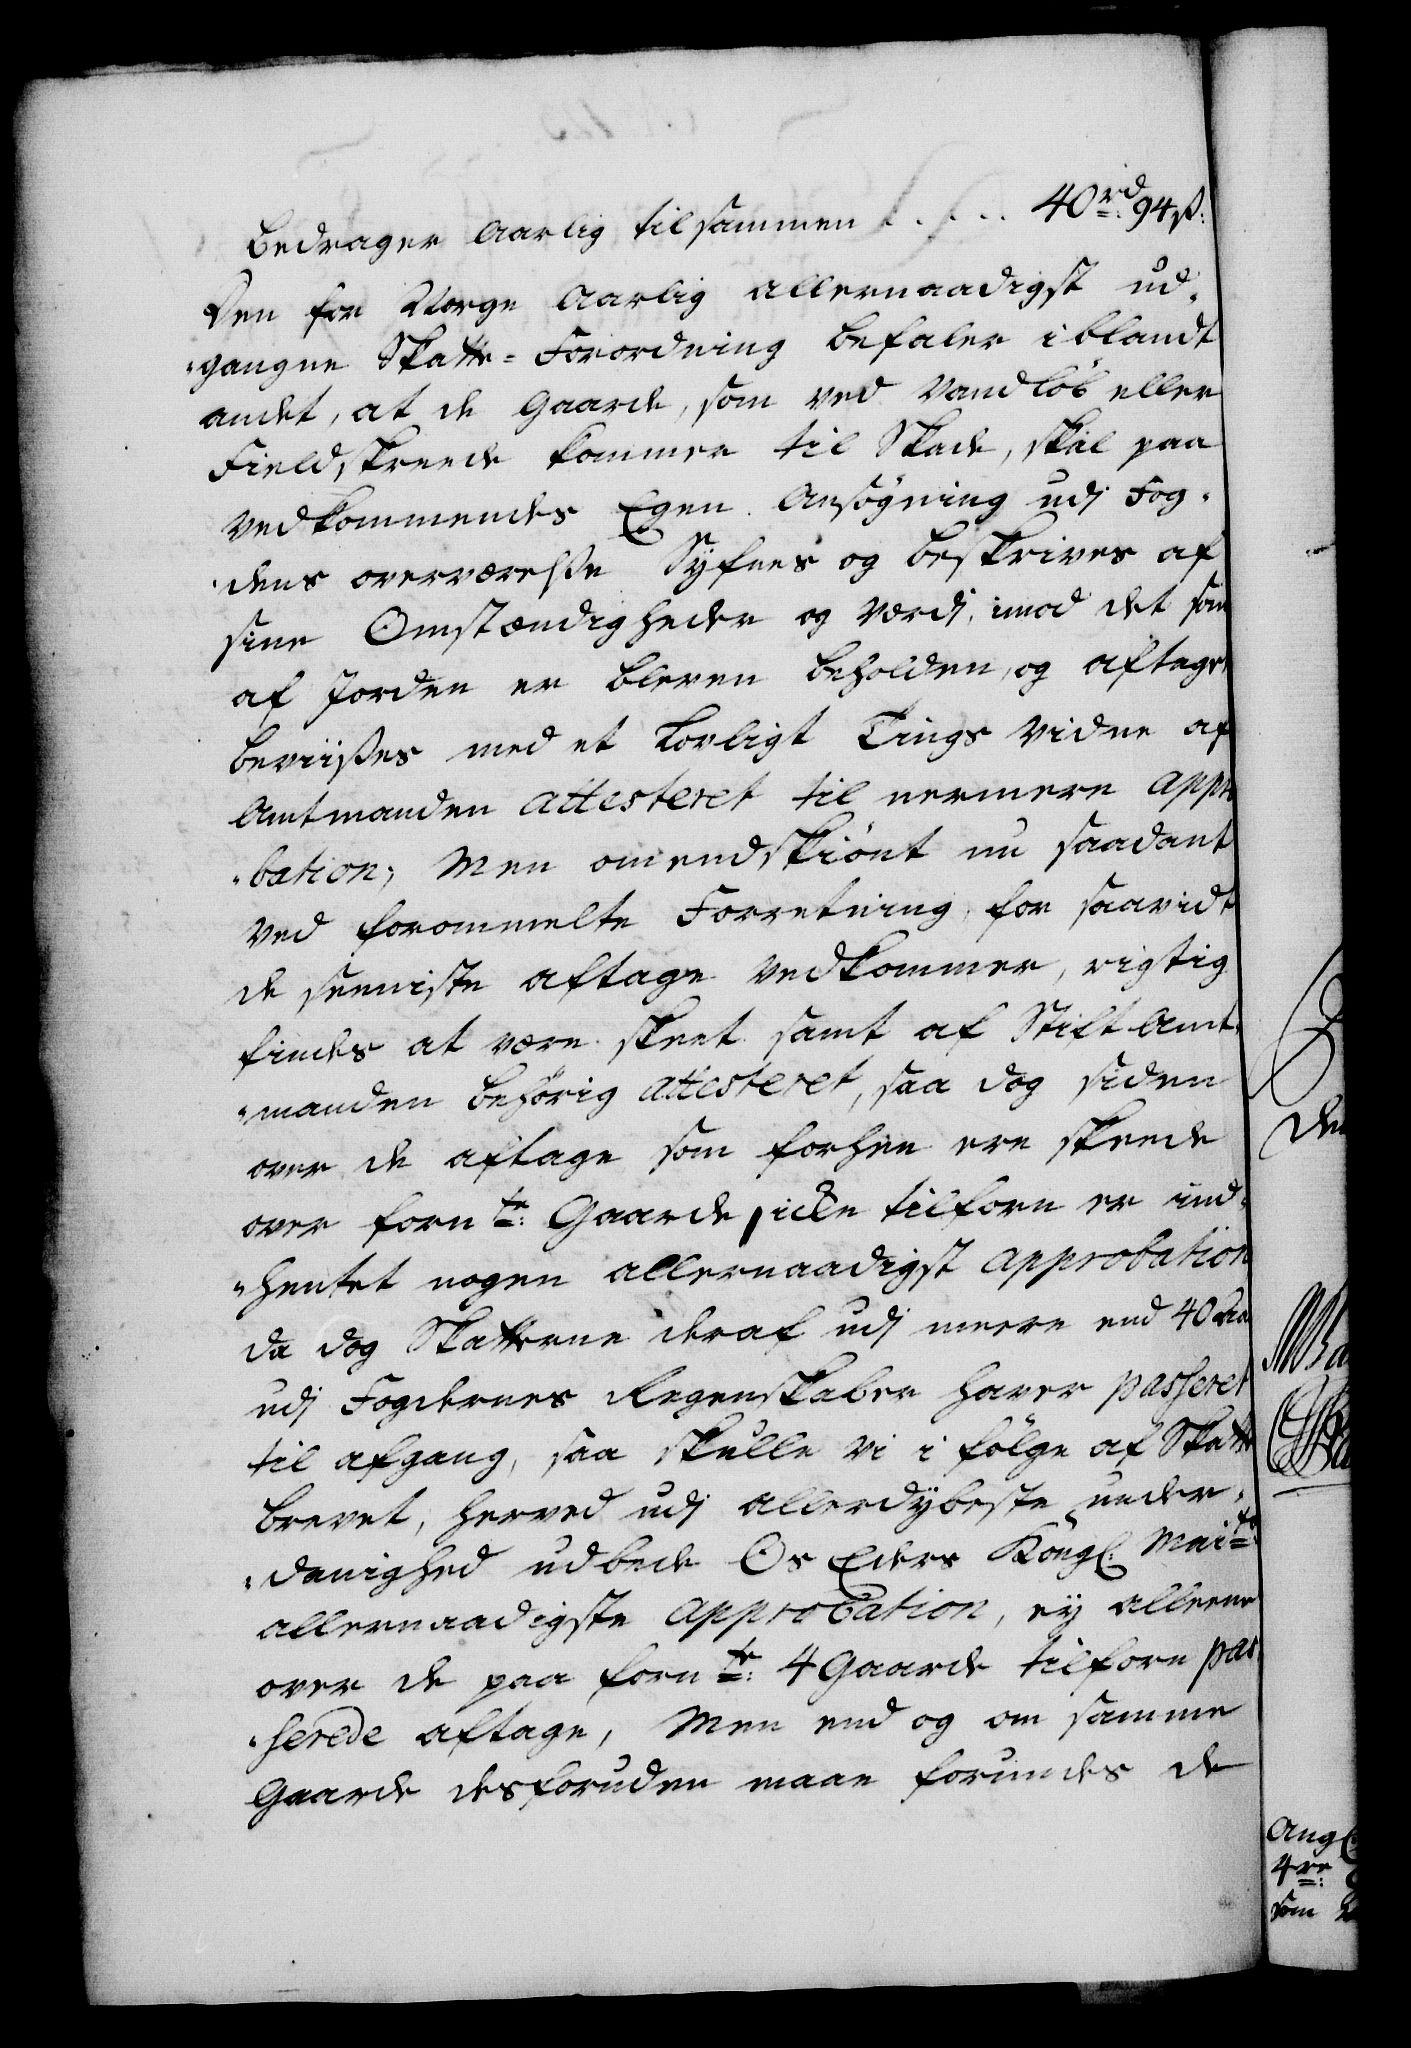 bedrager Aarlig tilsammen . . . . . 40rd: 94ß:
Den for Norge Aarlig allernaadigst ud-
-gangne Skatte-Forordning befaler iblandt
andet, at de Gaarde, som ved Vandløb eller
Fieldskreede kommer til Skade, skal paa
vedkommendes Egen Ansøgning udj Fog-
-dens overværelße Syfnes og beskrives af
sine Omstændigheder og værdj, imod det som
af Jorden er bleven beholden, og aftaget
beviißes med et lovligt Tings Vidne af
Amtmanden attesteret til nermere Appro
-bation; Men omendskiønt nu saadant
ved forommelte Forretning, for saavidt
de seeniste aftage vedkommer, rigtig
findes at være skeet samt af Stift Amt-
-manden behørig attesteret, saa dog siden
over de aftage som forhen ere skeede
over fornte: Gaarde, icke tilforn er ind-
-hentet nogen allernaadigst approbation
da dog Skatterne deraf udj meere end 40 Aar
udj Fogdernes Regenskaber haver passeret
til afgang, saa skulle vi i følge af Skatte
brevet, herved udj allerdybeste under-
-danighed udbede Os Eders Kongl: Maits
allernaadigste Approbation, ey alleene
over de paa fornte: 4 Gaarde tilforn pas-
-serede aftage, Men end og om samme
Gaarde desforuden maae forundes de
den
Angl
4re:
som